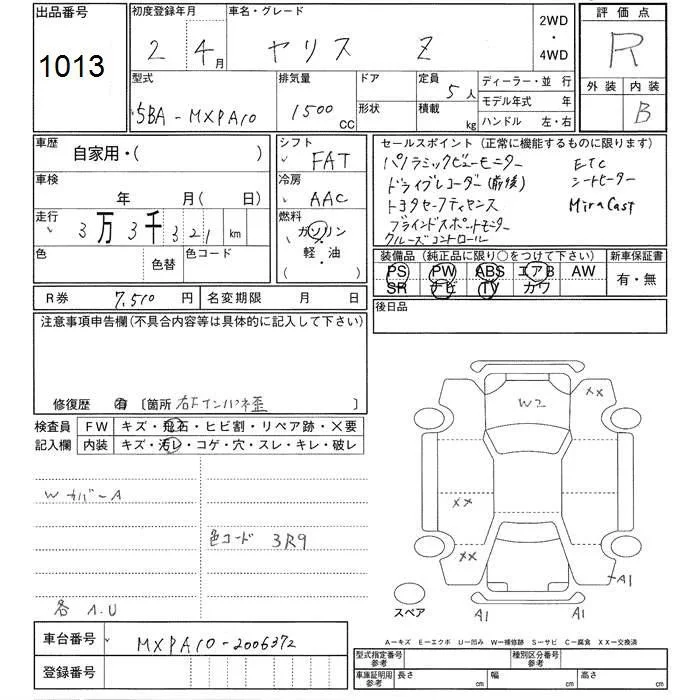 出品番号
1013
初度登録年月
2 4月
車名・グレード
ヤリス Z
2WD
・
4WD
評価点
R
外装 内装
B
型式
5BA-MXPA10
排気量
1500 CC
ドア
形状
定員
5人
積載
kg
ディーラー・並 行
モデル年式 年
ハンドル 左・右
車歴
自家用・( )
車検
年 月( 日)
走行
3万3千321 km
色
色替
色コード
シフト
FAT
冷房
AAC
燃料
ガソリン
・
軽・油
セールスポイント (正常に機能するものに限ります)
パノラミックビューモニター ETC
ドライブレコーダー(前後) シートヒーター
トヨタセーフティセンス MiraCast
ブラインドスポットモニター
クルーズコントロール
装備品 (純正品に限り○をつけて下さい)
PS PW ABS エアB AW
SR ナビ TV カワ
新車保証書
有・無
後日品
R券 7,510 円
名変期限 月 日
注意事項申告欄(不具合内容等は具体的に記入して下さい)
修復歴 有 〔箇所 右F インパネ歪 〕
検査員
記入欄
FW キズ・飛石・ヒビ割・リペア跡・×要
内装 キズ・汚レ・コゲ・穴・スレ・キレ・破レ
Wカバ-A
色コード 3R9
各 A.U
W2
XX
XX
XX
A1
A1
A1
スペア
A-キズ E-エクボ U-凹み W-補修跡 S-サビ C-腐食 XX-交換済
車台番号 MXPA10-2006372
登録番号
型式指定番号
参考
種別区分番号
参考
車庫証明用
参考
長さ cm 幅 cm 高さ cm